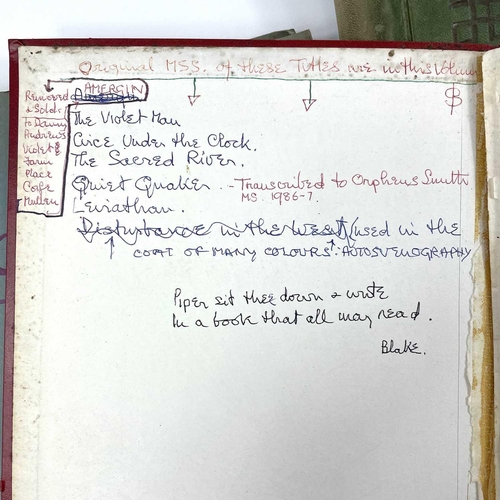 Original M.S.S. of these Titles are in this Volume
AMERGIN
Removed
& Sold
To Danny
Andrews
Violet
Farm
Place
Cafe
Mullen
The Violet Man
Circe Under the Clock.
The Sacred River.
Quiet Quaker. - Transcribed to Orpheus Smith
MS. 1986-7.
Leviathan.
Disturbance in the West (used in the
COAT OF MANY COLOURS:
Piper sit thee down & write
In a book that all may read.
Blake.